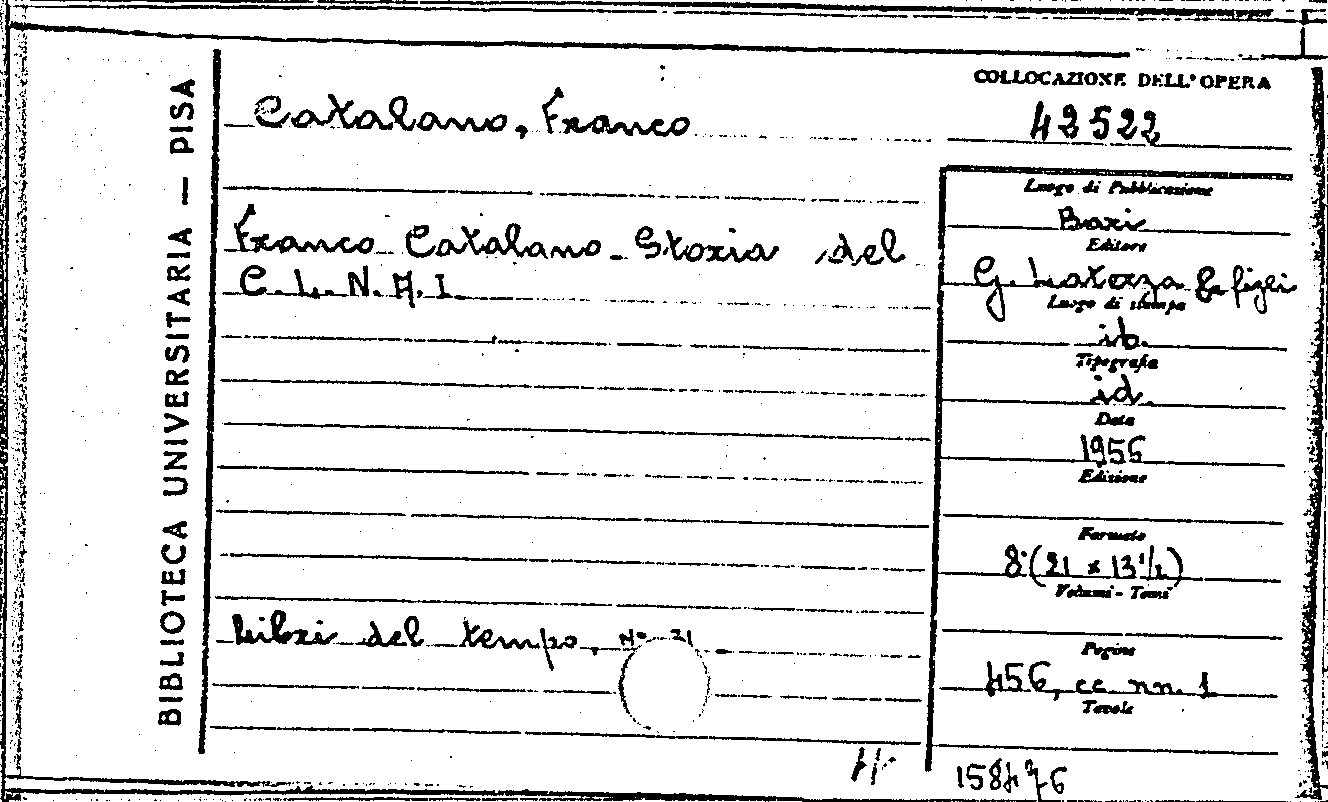 BIBLIOTECA UNIVERSITARIA — PISA
COLLOCAZIONE DELL'OPERA
42522
Catalano, Franco
Franco Catalano - Storia del
C. L. N. A. I.
Libri del tempo, N° 31
Luogo di Pubblicazione
Bari
Editore
G. Laterza & figli
Luogo di stampa
ib.
Tipografia
id.
Data
1956
Edizione
Formato
8° (21 x 13 1/2)
Volumi - Tomi
Pagine
456, cc nn. 1
Tavole
158476